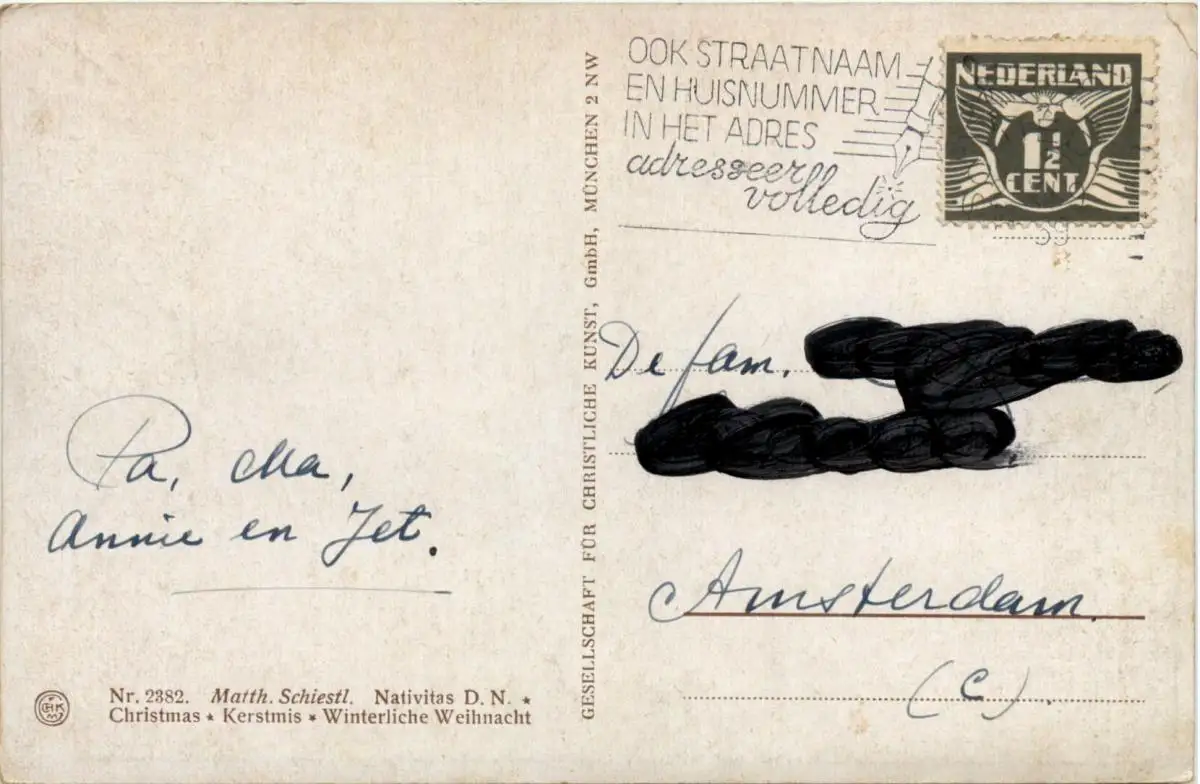 OOK STRAATNAAM
EN HUISNUMMER
IN HET ADRES
adresseer
volledig
NEDERLAND
1 1/2
CENT
39
GESELLSCHAFT FÜR CHRISTLICHE KUNST, GmbH, MÜNCHEN 2 NW
De fam.
Amsterdam.
(C).
Pa, Ma,
Annie en Jet.
Nr. 2382. Matth. Schiestl. Nativitas D. N. ★
Christmas ★ Kerstmis ★ Winterliche Weihnacht